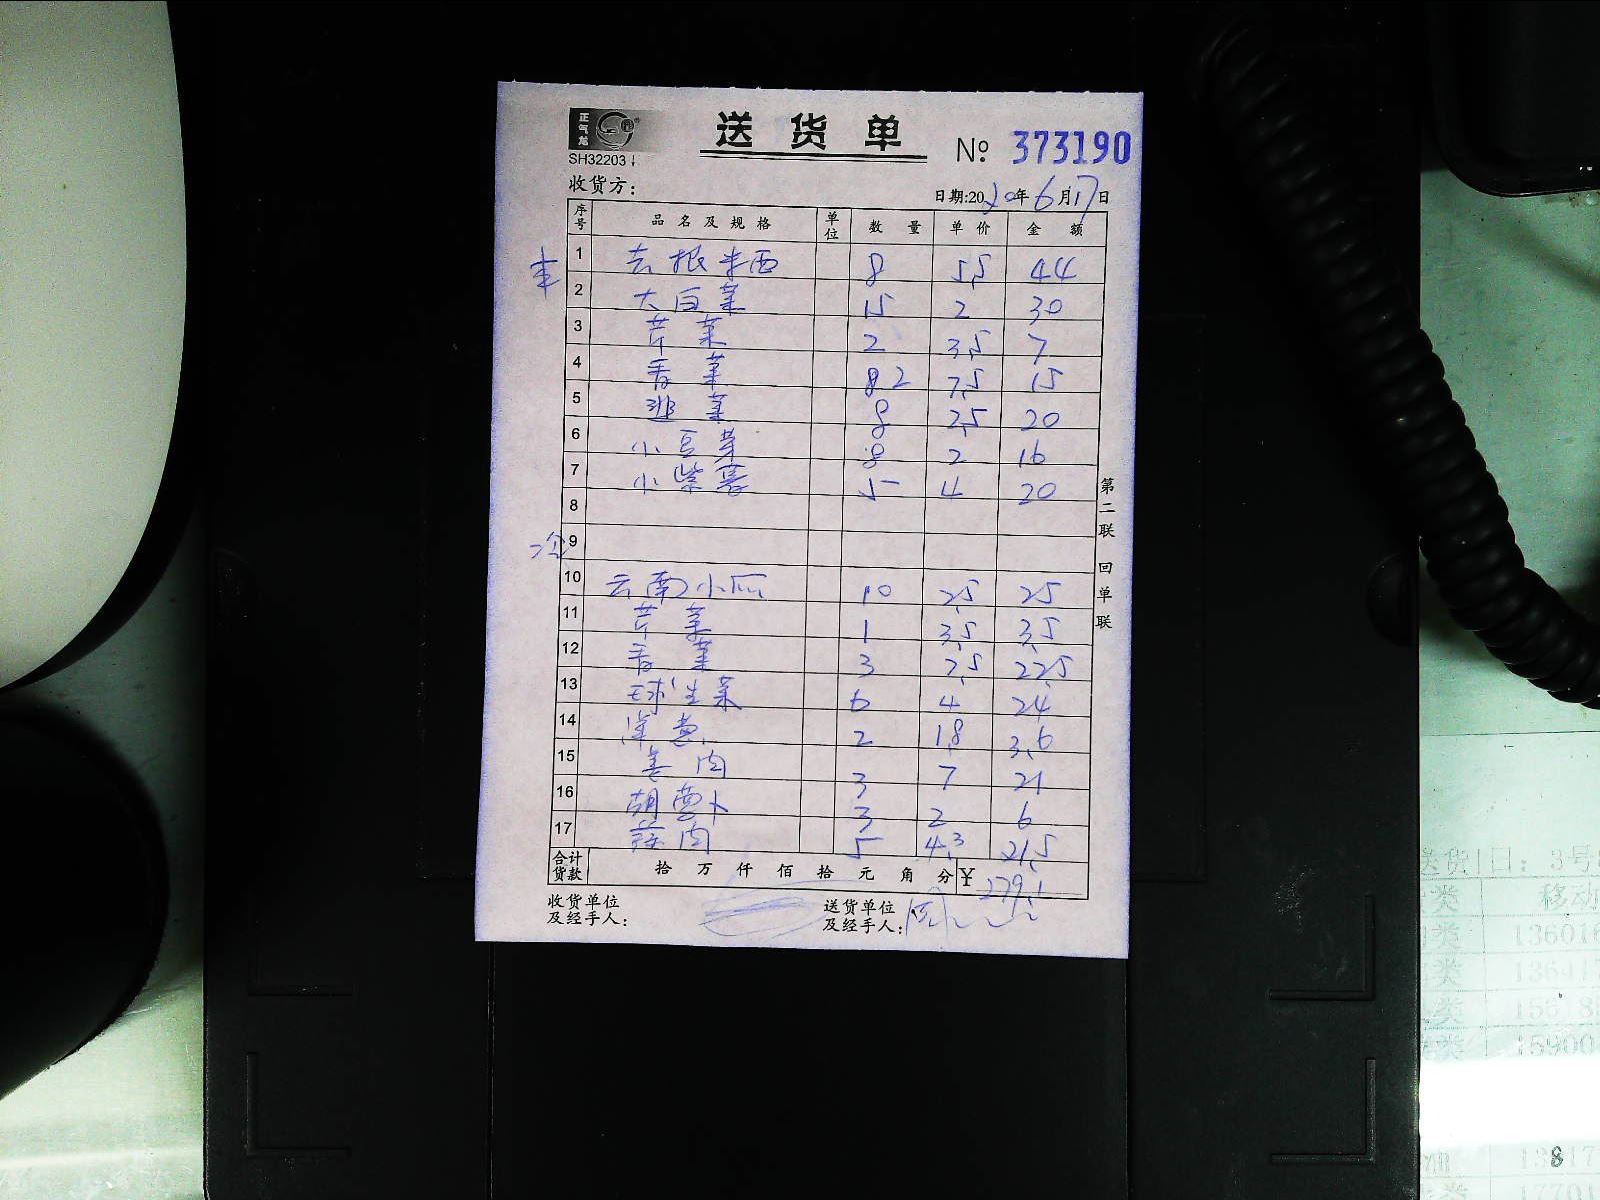 正气龙
SH32203
送货单
№ 373190
收货方：
日期:2020年6月17日
序号 品名及规格 单位 数量 单价 金额
1 去根半西 8 5.5 44
2 大白菜 15 2 30
3 芹菜 2 3.5 7
4 香菜 2 7.5 15
5 菜 8 2.5 20
6 小豆芽 8 2 16
7 小紫 5 4 20
8
冷 9
10 云南小瓜 10 2.5 25
11 芹菜 1 3.5 3.5
12 香菜 3 7.5 22.5
13 球生菜 6 4 24
14 洋葱 2 1.8 3.6
15 姜肉 3 7 21
16 胡萝卜 3 2 6
17 蒜肉 5 4.3 21.5
合计货款 拾 万 仟 佰 拾 元 角 分 ¥ 279.1
收货单位及经手人：
送货单位及经手人：
第二联 回单联
送货1日：3号
类 移动
类 13601
类 1364
类 156
类 15900
8